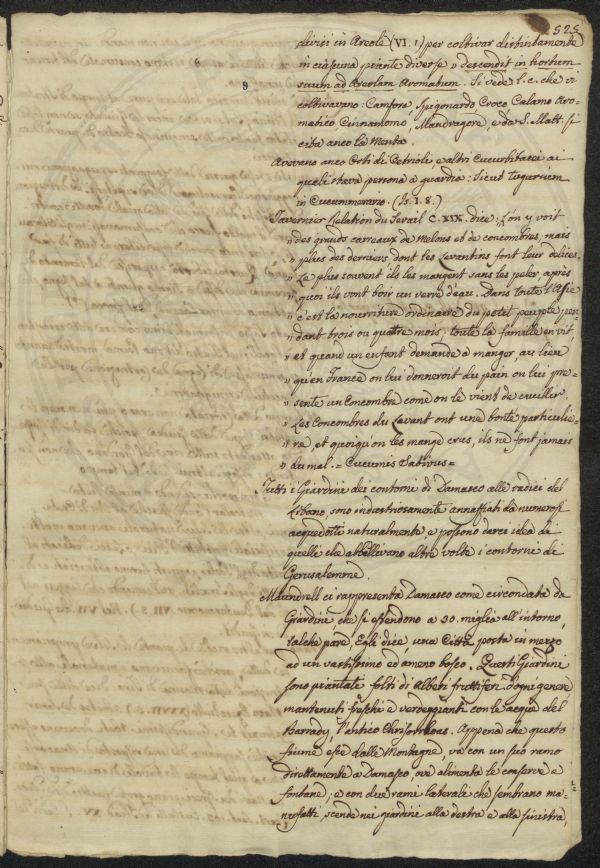 525
divisi in Areole (VI. 1) per coltivar distintamente
in ciascuna piante diverse » descendit in hortum
suum ad Areolam Aromatum. Si vede l. c. che vi
coltivavano: Campore Spigonardo Croco Calamo Aro-
matico Cinnamomo, Mandragore, e da S. Matt. si
cita anco la Menta.
Avevano anco Orti di Cetrioli e altri Cucurbitacei ai
quali stava persona a guardia: Sicut tugurium
in Cucummerario. (Is. I. 8.)
Tavernier Relation du Serail C. XIX. dice: L'on y voit
» des grands carreaux de Melons et de concombres, mais
» plus des derniers, dont les Levantins font leur delices.
» Le plus souvent ils les mangent sans les peler, après
» quoi ils vont boir un verre d'eau. Dans toute l'Asie
» c'est la nourriture ordinaire du petit peuple pen-
» dant trois ou quattre mois, toute la famille en vit,
» et quand un enfant demande à manger, au lieu
» qu'en France on lui donneroit du pain on lui pre-
» sente un Concombre come on le vient de cueillir.
» Les Concombres du Levant ont une bonté particulie-
» re, et quoiqu'on les mange crus, ils ne font jamais
» du mal. = Cucumis Sativus =
Tutti i Giardini dei contorni di Damasco alle radici del
Libano, sono industriosamente annaffiati da numerosi
acquedotti naturalmente e possono darci idea di
quelli che abbellivano altre volte i contorni di
Gerusalemme.
Maundrell ci rappresenta Damasco come circondata da
Giardini che si estendono a 30. miglia all'intorno,
talchè pare, Egli dice, una Città posta in mezzo
ad un vastissimo ed ameno bosco. Questi Giardini
sono piantati folti di Alberi fruttiferi d'ogni genere
mantenuti freschi e verdeggianti con le acque del
Barrady, l'antico Chrisorrhoas. Appena che questo
fiume esce dalle Montagne, và con un suo ramo
direttamente a Damasco, ove alimenta le conserve e
fontane; e con due rami laterali che sembrano ma-
nufatti, scende nei giardini alla destra e alla sinistra,